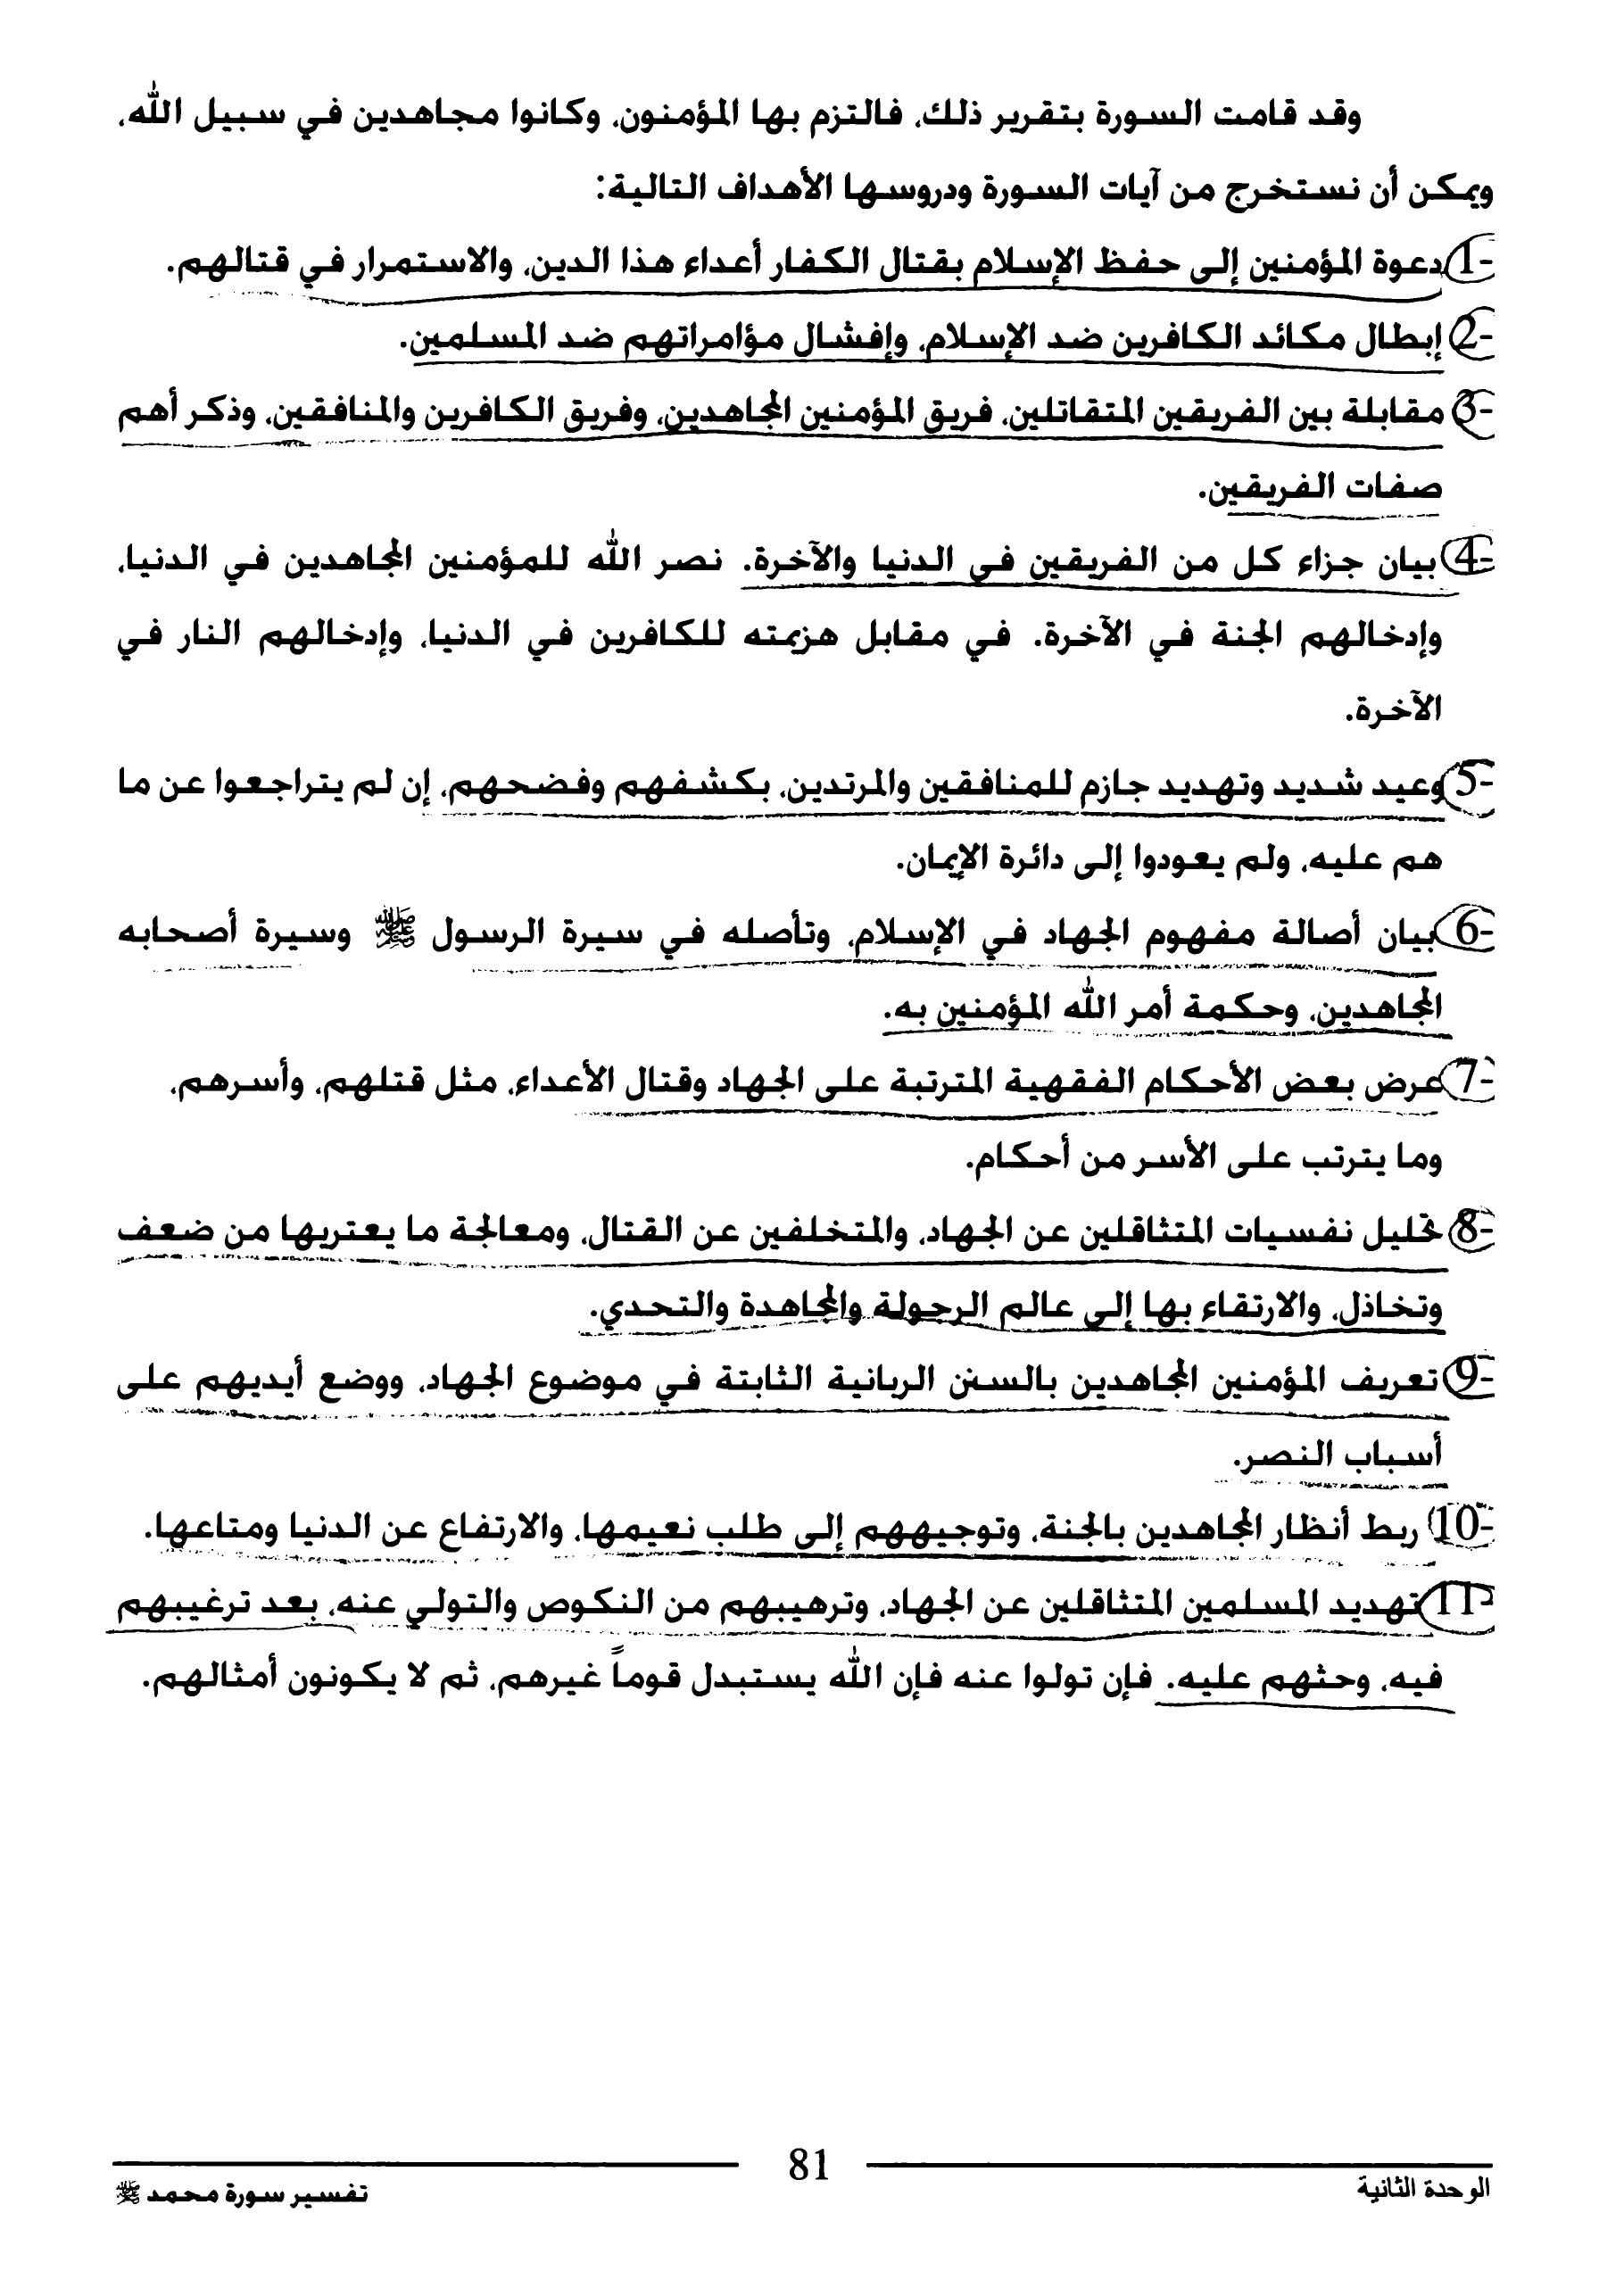 وقد قامت السورة بتقرير ذلك، فالتزم بها المؤمنون، وكانوا مجاهدين في سبيل الله،
ويمكن أن نستخرج من آيات السورة ودروسها الأهداف التالية:
1- دعوة المؤمنين إلى حفظ الإسلام بقتال الكفار أعداء هذا الدين، والاستمرار في قتالهم.
2- إبطال مكائد الكافرين ضد الإسلام، وإفشال مؤامراتهم ضد المسلمين.
3- مقابلة بين الفريقين المتقاتلين، فريق المؤمنين المجاهدين، وفريق الكافرين والمنافقين، وذكر أهم
صفات الفريقين.
4- بيان جزاء كل من الفريقين في الدنيا والآخرة. نصر الله للمؤمنين المجاهدين في الدنيا،
وإدخالهم الجنة في الآخرة. في مقابل هزيمته للكافرين في الدنيا، وإدخالهم النار في
الآخرة.
5- وعيد شديد وتهديد جازم للمنافقين والمرتدين، بكشفهم وفضحهم، إن لم يتراجعوا عن ما
هم عليه، ولم يعودوا إلى دائرة الإيمان.
6- بيان أصالة مفهوم الجهاد في الإسلام، وتأصله في سيرة الرسول ﷺ وسيرة أصحابه
المجاهدين، وحكمة أمر الله المؤمنين به.
7- عرض بعض الأحكام الفقهية المترتبة على الجهاد وقتال الأعداء، مثل قتلهم، وأسرهم،
وما يترتب على الأسر من أحكام.
8- تحليل نفسيات المتثاقلين عن الجهاد، والمتخلفين عن القتال، ومعالجة ما يعتريها من ضعف
وتخاذل، والارتقاء بها إلى عالم الرجولة والمجاهدة والتحدي.
9- تعريف المؤمنين المجاهدين بالسنن الربانية الثابتة في موضوع الجهاد، ووضع أيديهم على
أسباب النصر.
10- ربط أنظار المجاهدين بالجنة، وتوجيههم إلى طلب نعيمها، والارتفاع عن الدنيا ومتاعها.
11- تهديد المسلمين المتثاقلين عن الجهاد، وترهيبهم من النكوص والتولي عنه، بعد ترغيبهم
فيه، وحثهم عليه. فإن تولوا عنه فإن الله يستبدل قوماً غيرهم، ثم لا يكونون أمثالهم.
81
الوحدة الثانية
تفسير سورة محمد ﷺ